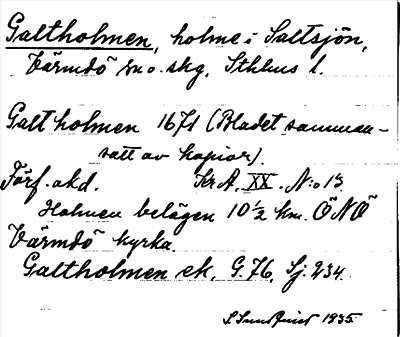 Galtholmen, holme i Saltsjön,
Värmdö sn o. skg, Sthlms l.
Galtholmen 1671 (Bladet samman-
satt av kopior).
Förf. akd. Kr A. XX. N:o 13.
Holmen belägen 10 1/2 km. ÖNÖ
Värmdö kyrka.
Galtholmen ek. G. 76. Sj. 234.
S. Sundquist 1935